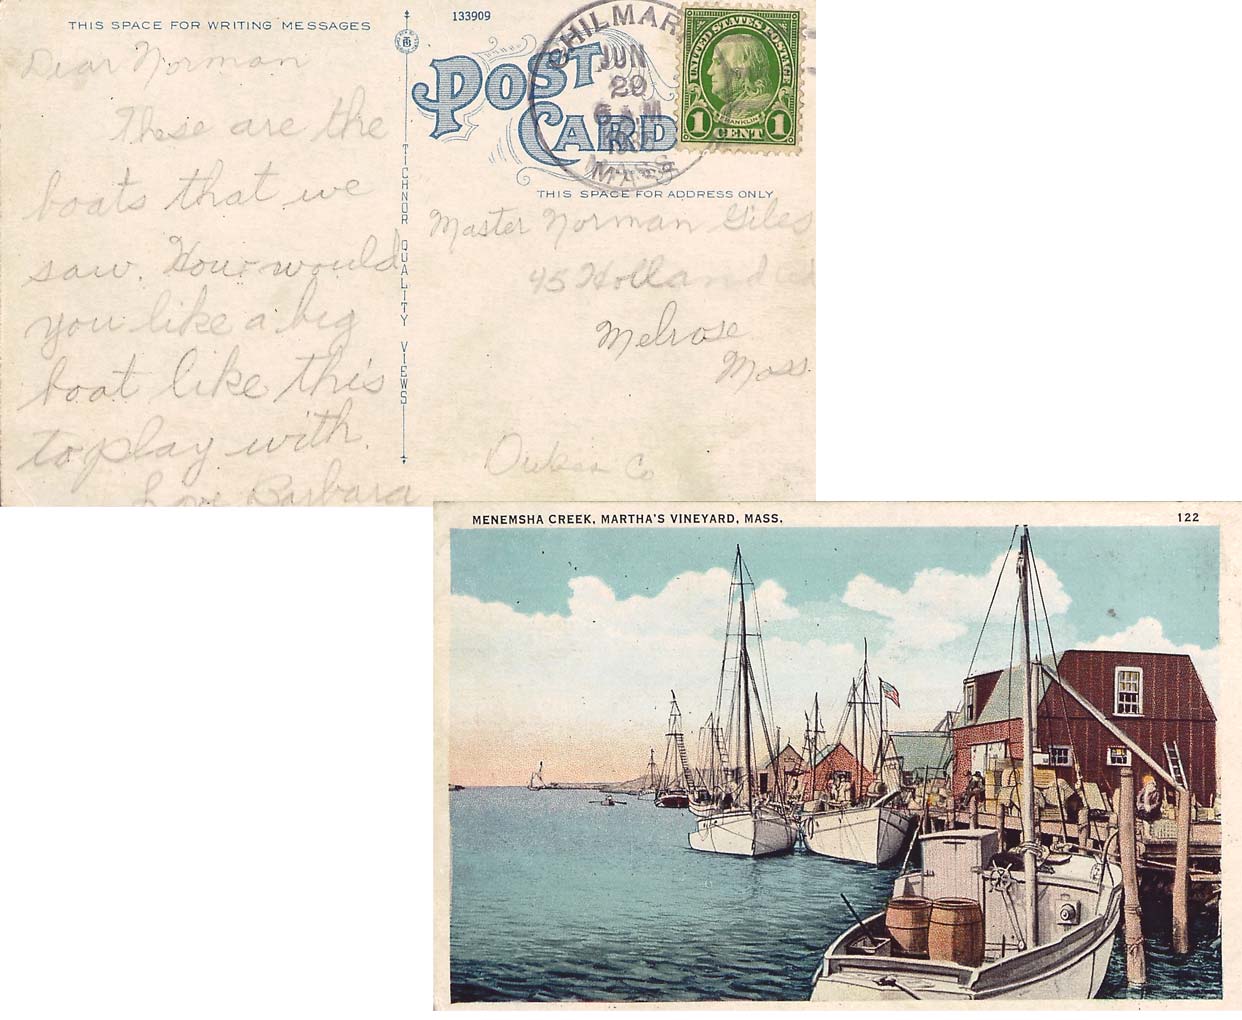 THIS SPACE FOR WRITING MESSAGES
Dear Norman
These are the
boats that we
saw. How would
you like a big
boat like this
to play with.
Love Barbara
TICHNOR QUALITY VIEWS
133909
POST
CARD
CHILMARK
JUN
29
6 AM
MASS.
UNITED STATES POSTAGE
FRANKLIN
1 CENT 1
THIS SPACE FOR ADDRESS ONLY
Master Norman Giles
45 Holland
Melrose
Mass.
Dukes Co
MENEMSHA CREEK, MARTHA'S VINEYARD, MASS.
122